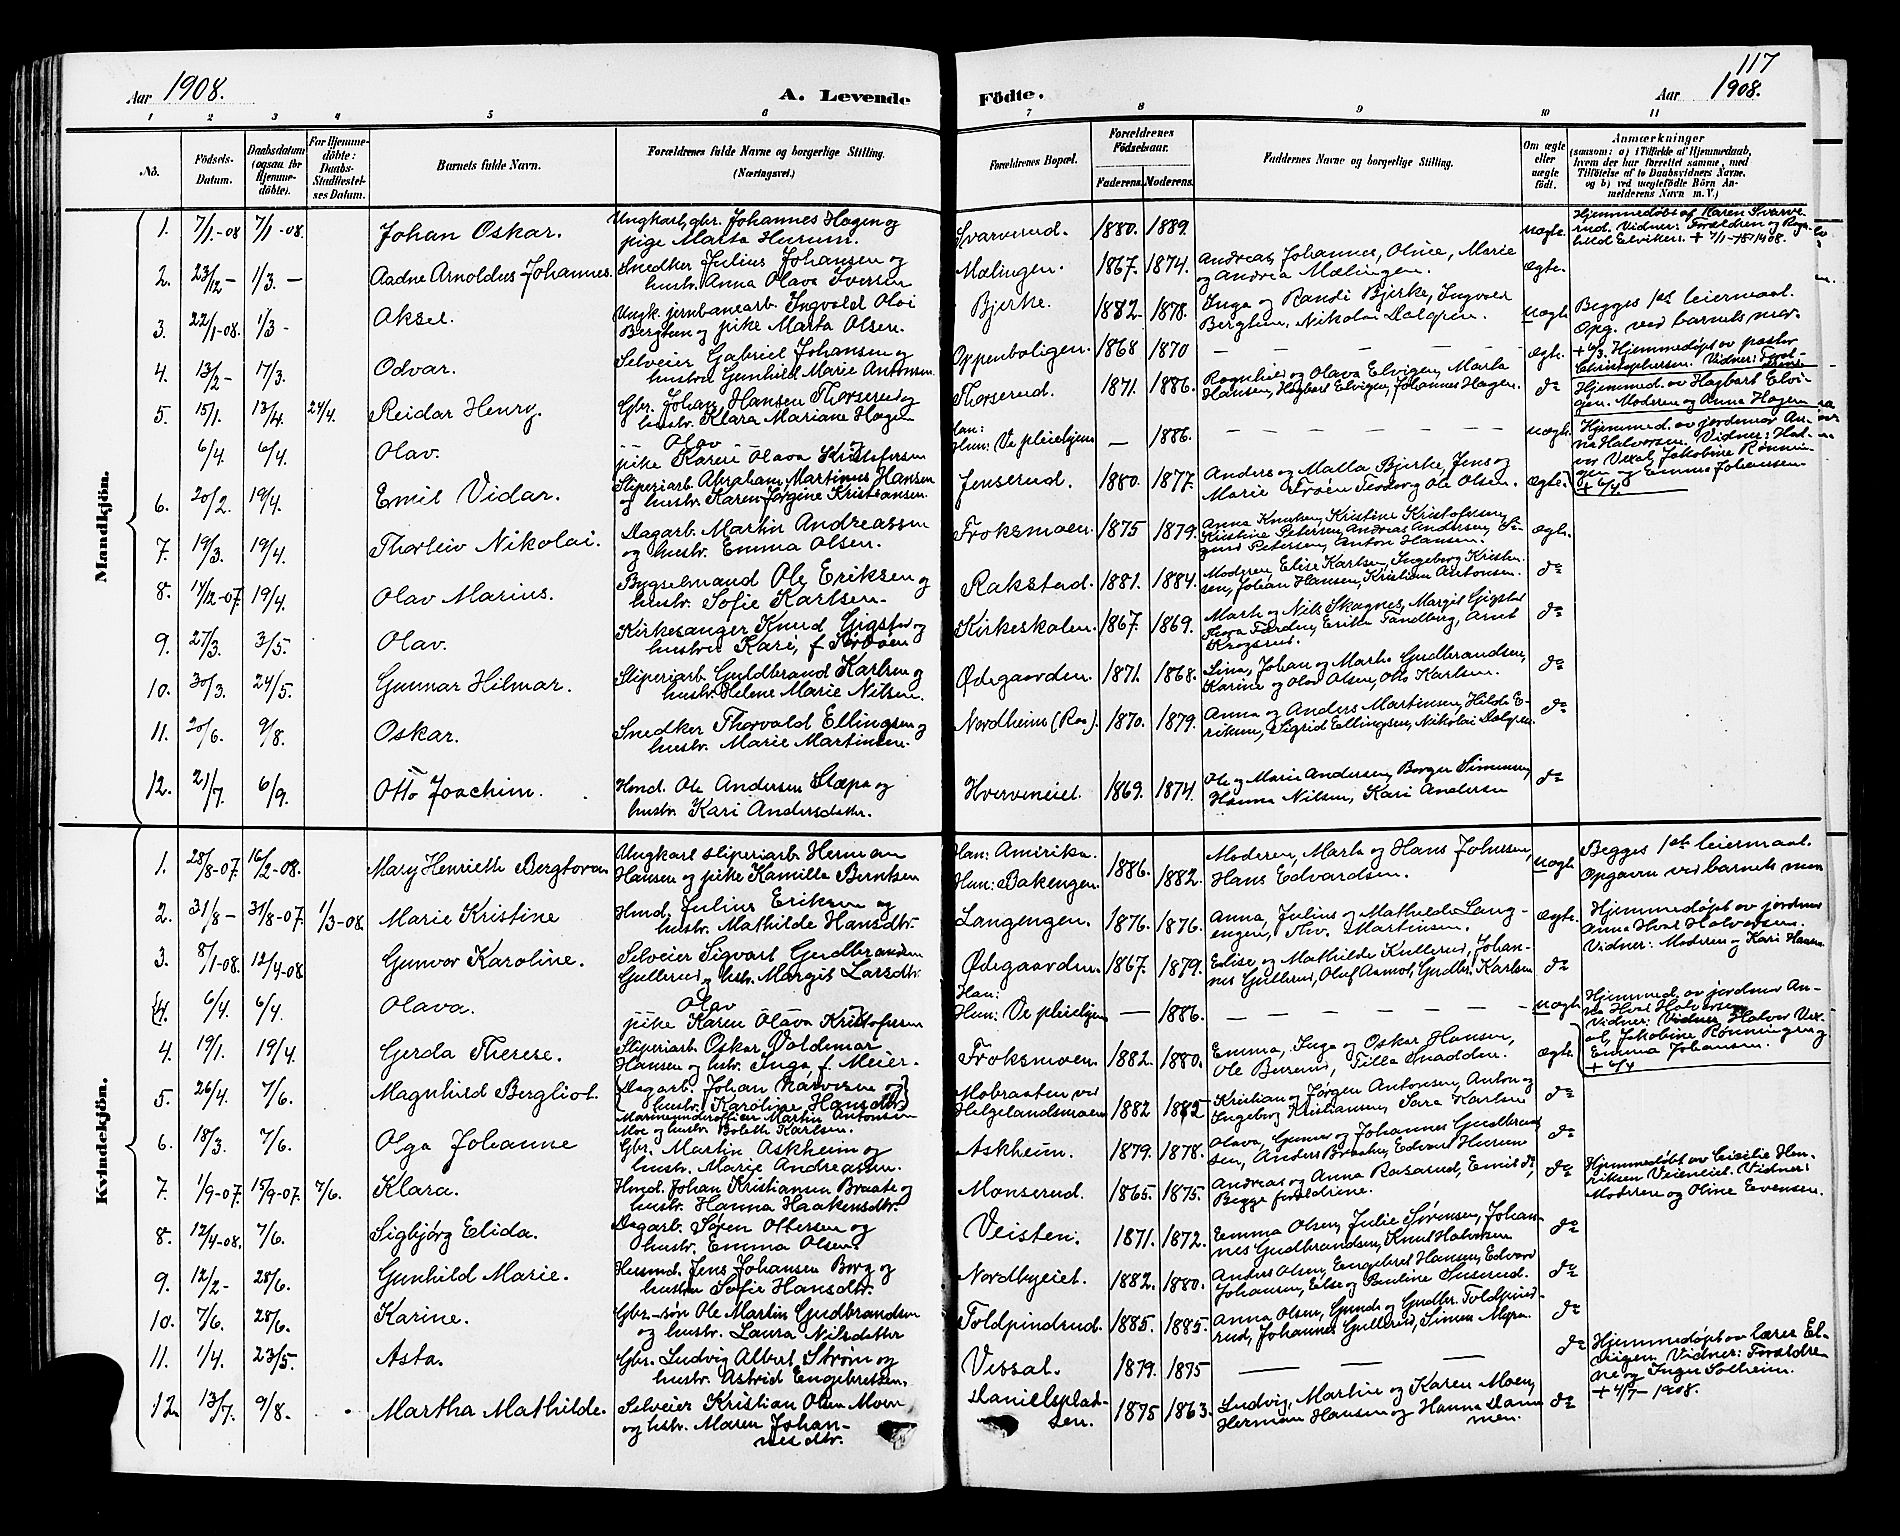 117
Aar 1908. A. Levende Födte. Aar 1908.
1 2 3 4 5 6 7 8 9 10 11
No.
Födsels-Datum.
Daabsdatum (ogsaa for Hjemmedöbte).
For Hjemmedöbte: Daabs-Stadfæstelses Datum.
Barnets fulde Navn.
Forældrenes fulde Navne og borgerlige Stilling.
(Næringsvei.)
Forældrenes Bopæl.
Forældrenes Födselsaar.
Faderens. Moderens.
Faddernes Navne og borgerlige Stilling.
Om ægte eller uægte födt.
Anmærkninger
(saasom: a) i Tilfælde af Hjemmedaab, hvem der har forrettet samme, med Tilföielse af to Daabsvidners Navne, og b) ved uægtefödte Börn Anmelderens Navn m. V.)
Mandkjön.
1. 7/1-08 7/1-08. Johan Oskar. Ungkarl, gbr. Johannes Hagen og
pige Marta Hurum. Svarverud. 1880. 1889. uægte Hjemmedøbt af Karen Svarverud. Vidner: Forældren og Ragnhild Elviken.
2. 23/12- 1/3.- Aadne Arnoldus Johannes. Snedker Julius Johansen og
hustr. Anna Olava Iversen Mælingen. 1867. 1874. Andreas, Johannes, Oline, Marie
og Andrea Mælingen. Ægte.
3. 22/1-08. 1/3- Aksel. Ungk. jernbanearb. Ingvald Olai
Berglun og pike Marta Olsen. Bjerke. 1882 1878. Inga og Randi Bjerke, Ingvald
Berglun, Nikolai Dalgren. uægte Begges 1ste leiermaal.
Opg. ved barnets mor.
4. 13/2- 17/3. Odvar. Selveier Gabriel Johansen og
hustru Gunhild Marie Antonsen. Oppenboligen. 1868 1870 — — — ægte. + 6/3. Hjemmedøpt av pastor
Christophersen. Vidner: Forældrene
5. 15/1. 13/4. 24/4. Reidar Henry. Gbr. Johan Hansen Thorserud og
hustr. Klara Mariane Hagen Thorserud. 1871. 1886. Ragnhild og Olava Elvigen, Marta
Hansen, Hagbart Elvigen, Johannes Hagen. do Hjemmed. av Hagbart Elvigen. Moderen og Anna Hagen
6/4. 6/4. Olav. Olav
pike Karen Olava Kristofersen Han:
Hun: Ve pleiehjem — 1886. — — — uægte. Hjemmed. av jordmor Anna Halvorsen. Vidner: Halvor Vexal, Jakobine Rønningen og Emma Johansen
+ 6/4.
6. 20/2. 19/4. Emil Vidar. Sliperiarb. Abraham Martinus Hansen
og hustr. Karen Jørgine Kristiansen. Jenserud. 1880. 1877. Anders og Malla Bjerke, Jens og
Marie og Ole Olsen. ægte.
7. 19/3. 19/4. Thorleiv Nikolai. Dagarb. Martin Andreassen
og hustr. Emma Olsen. Froksmoen. 1875 1879. Anna Knutsen, Kristine Kristofersen,
Kristine Petersen, Andreas Andersen, Sigurd Petersen, Anton Hansen. ægte.
8. 17/12-07. 19/4. Olav Marius. Bygselmand Ole Eriksen og
hustr. Sofie Karlsen. Rakstad. 1881. 1884. Moderen, Elise Karlsen, Ingeborg Kristensen, Johan Hansen, Kristian Antonsen. do
9. 27/3. 3/5. Olav. Kirkesanger Knud Gigstad og
hustru Kari, f. Kirkeskolen. 1867. 1869. Marta og Nils Skagnes, Margit Gigstad
Thora Færden, Erik Tandberg, Arnt
Krogsrud. do
10. 30/3. 24/5. Gunnar Hilmar. Sliperiarb. Guldbrand Karlsen og
hustr. Helene Marie Nilsen. Ødegaarden. 1871. 1868. Lina, Johan og Marta Gudbrandsen,
Karine og Olav Olsen, Otto Karlsen. do
11. 20/6. 9/8. Oskar. Snedker Thorvald Ellingsen og
hustr. Marie Martinsen. Nordheim (Raa). 1870. 1879. Anna og Anders Martinsen, Hilda Eriksen, Sigrid Ellingsen, Nikolai Dalgren. do
12. 21/7. 6/9. Otto Joachim. Hmd. Ole Andersen Slæpa og
hustr. Kari Andersdatter. Hverveneiet. 1869. 1874. Ole og Marie Andersen, Borger Simensen,
Hanna Nilsen, Kari Andersen do
Kvindekjön.
1. 28/8-07. 16/2-08. Mary Henriette Bergtora Ungkarl sliperiarb. Herman
Hansen og pike Kamilla Berntsen Han: Amerika.
Hun: Bakengen. 1886. 1882. Moderen, Marta og Hans Johnsen,
Hans Edvardsen. uægte Begges 1ste leiermaal.
Opgaven ved barnets mor
2. 31/8- 31/8-07. 1/3-08. Marie Kristine Hmd. Julius Eriksen og
hustr. Mathilde Hansdtr. Langengen. 1876. 1876. Anna, Julius og Mathilde Langengen, Martinsen. Ægte. Hjemmedøpt av jordmor
Anna Hval Halvorsen.
Vidner: Moderen og Kari Hansen
3. 8/1-08. 12/4-08. Gunvor Karoline. Selveier Sigvart Gudbrandsen
Gullerud og hstr. Margit Larsdtr. Ødegaarden. 1867. 1879. Elise og Mathilde Kullerud, Johannes Gullerud, Oluf Aamot, Gudbr. Karlsen do
4. 6/4. 6/4. Olava. Olav
pike Karen Olava Kristofersen Han:
Hun: Ve pleiehjem — 1886. — — — uægte Hjemmed. av jordmor Anna Hval Halvorsen
Vidner: Halvor Vexal, Jakobine Rønningen og
Emma Johansen.
+ 6/4
4. 19/1. 19/4. Gerda Therese. Sliperiarb. Oskar Valdemar
Hansen og hstr. Inga, f. Meier. Froksmoen. 1882. 1880. Emma, Inga og Oskar Hansen,
Ole Burud, Tilla Snadden. ægte.
5. 26/4. 7/6. Magnhild Bergliot. Dagarb. Johan Narvesen og
hustr. Karoline Hansdtr.
Martin Antonsen
Moe og hustr. Bolette Karlsen. Mobraaten ved
Helgelandsmoen 1882 1882 Kristian og Jørgen Antonsen, Anton og
Ingeborg Kristiansen, Sara Karlsen do
6. 18/3. 7/6. Olga Johanne Gbr. Martin Askheim og
hustr. Marie Andreassen. Askheim. 1879. 1878. Olava, Gunnar og Johannes Gudbrandsen, Anders Braaten, Edvart Hurum do
7. 1/9-07. 15/9-07. 7/6. Klara. Hmd. Johan Kristiansen Braate og
hustr. Hanna Haakensdtr. Monserud. 1865. 1875. Andreas og Anna Rasarud, Emil do,
Begge forældrene. do Hjemmedøbt av Cecilie Henriksen Veieneiet. Vidner:
Moderen og Oline Evensen.
8. 12/4-08. 7/6. Sigbjørg Elida. Dagarb. Søren Ottersen og
hustr. Emma Olsen. Veisten. 1871. 1872. Emma Olsen, Julie Sørensen, Johannes Gudbrandsen, Knut Halvorsen do
9. 12/2- 28/6. Gunhild Marie. Husmd. Jens Johansen Borg og
hustru Sofie Hansdtr. Nordbyeiet. 1882. 1880. Anders Olsen, Engebret Hansen, Edvard
Johansen, Else og Pauline Susrud. do
10. 7/6. 28/6. Karine. Gbr.-søn Ole Martin Gudbrandsen
og hustr. Laura Nilsdatter Foldpindrud. 1885. 1885. Anna Olsen, Gunda og Gudbr. Foldpindrud, Johannes Gullerud, Simen Moen. do
11. 1/4. 23/5. Asta. Gbr. Ludvig Albert Strøm og
hustr. Astrid Engebretsen. Vexsal. 1879. 1875 — — — do Hjemmedøpt av lærer Elviigen. Vidner: Forældrene og Inger Solheim.
+ 4/7-1908.
12 13/7. 9/8. Martha Mathilde. Selveier Kristian Olsen Moen
og hstr. Maren Johannesdtr. Danielspladsen. 1875 1863. Ludvig, Martine og Karen Moen,
Herman Hansen og Hanna do